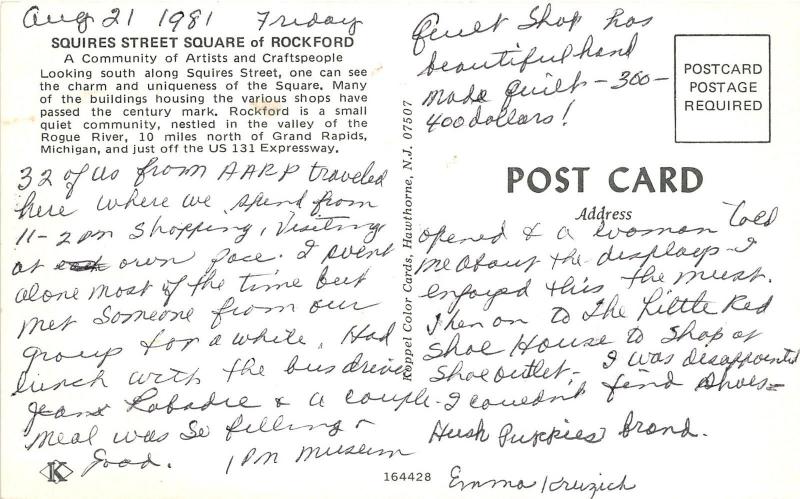 Aug 21 1981 Friday
SQUIRES STREET SQUARE of ROCKFORD
A Community of Artists and Craftspeople
Looking south along Squires Street, one can see
the charm and uniqueness of the Square. Many
of the buildings housing the various shops have
passed the century mark. Rockford is a small
quiet community, nestled in the valley of the
Rogue River, 10 miles north of Grand Rapids,
Michigan, and just off the US 131 Expressway.
32 of us from AARP traveled
here where we spend from
11-2 pm Shopping, Visiting
at own pace. I went
alone most of the time but
met someone from our
group for a while. Had
lunch with the bus driver
Labadie & a couple -
meal was so filling &
good. 1 pm museum
K
Koppel Color Cards, Hawthorne, N.J. 07507
164428
Quilt Shop has
beautiful hand
made quilts - 300 -
400 dollars!
POSTCARD
POSTAGE
REQUIRED
POST CARD
Address
opened & a woman told
me about the displays - I
enjoyed this the most.
Then on to The Little Red
Shoe House to shop at
Shoe outlet - I was disappointed
I couldn't find shoes =
Hush Puppies brand.
Emma